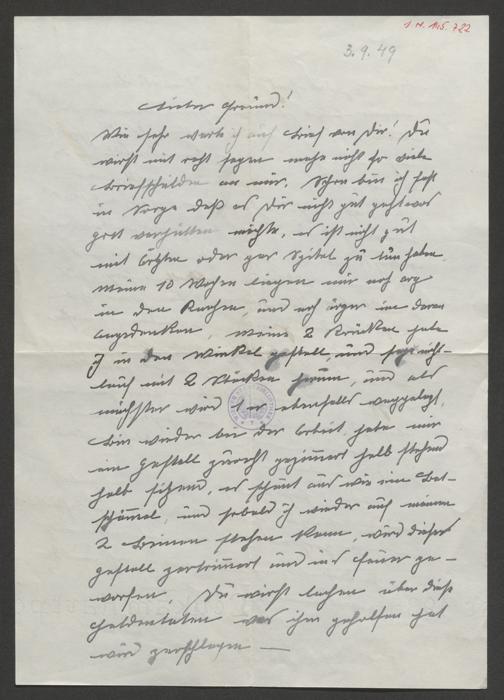 I.N. 145.722
3.9.49
Lieber Freund!
Wie sehr warte ich auf Brief von Dir! Du
wirst mit recht sagen mache nicht so viele
Briefschulden an mir. Schon bin ich fast
in Sorge daß es Dir nicht gut geht was
Gott verhütten möchte, es ist nicht gut
mit Ärzten oder gar Spital zu tun haben.
Meine 10 Wochen liegen mir noch arg
in den Knochen, und noch ärger im daran
angedenken, meine 2 Krücken habe
ich in den Winkel gestellt, und
mit 2 Stöcken herum, und als
nächster wird 1er ebenfalls weggelegt,
bin wieder bei der Arbeit, habe mir
ein Gestell zurecht gezimmert halb stehend
halb sitzend, es schaut aus wie ein Bet-
schämel, und sobald ich wieder auf meinen
2 Beinen stehen kann, wird dieses
Gestell zertrümmert und ins Feuer ge-
worfen. Du wirst lachen über diese
Heldentaten was ihm geholfen hat
wird zerschlagen —